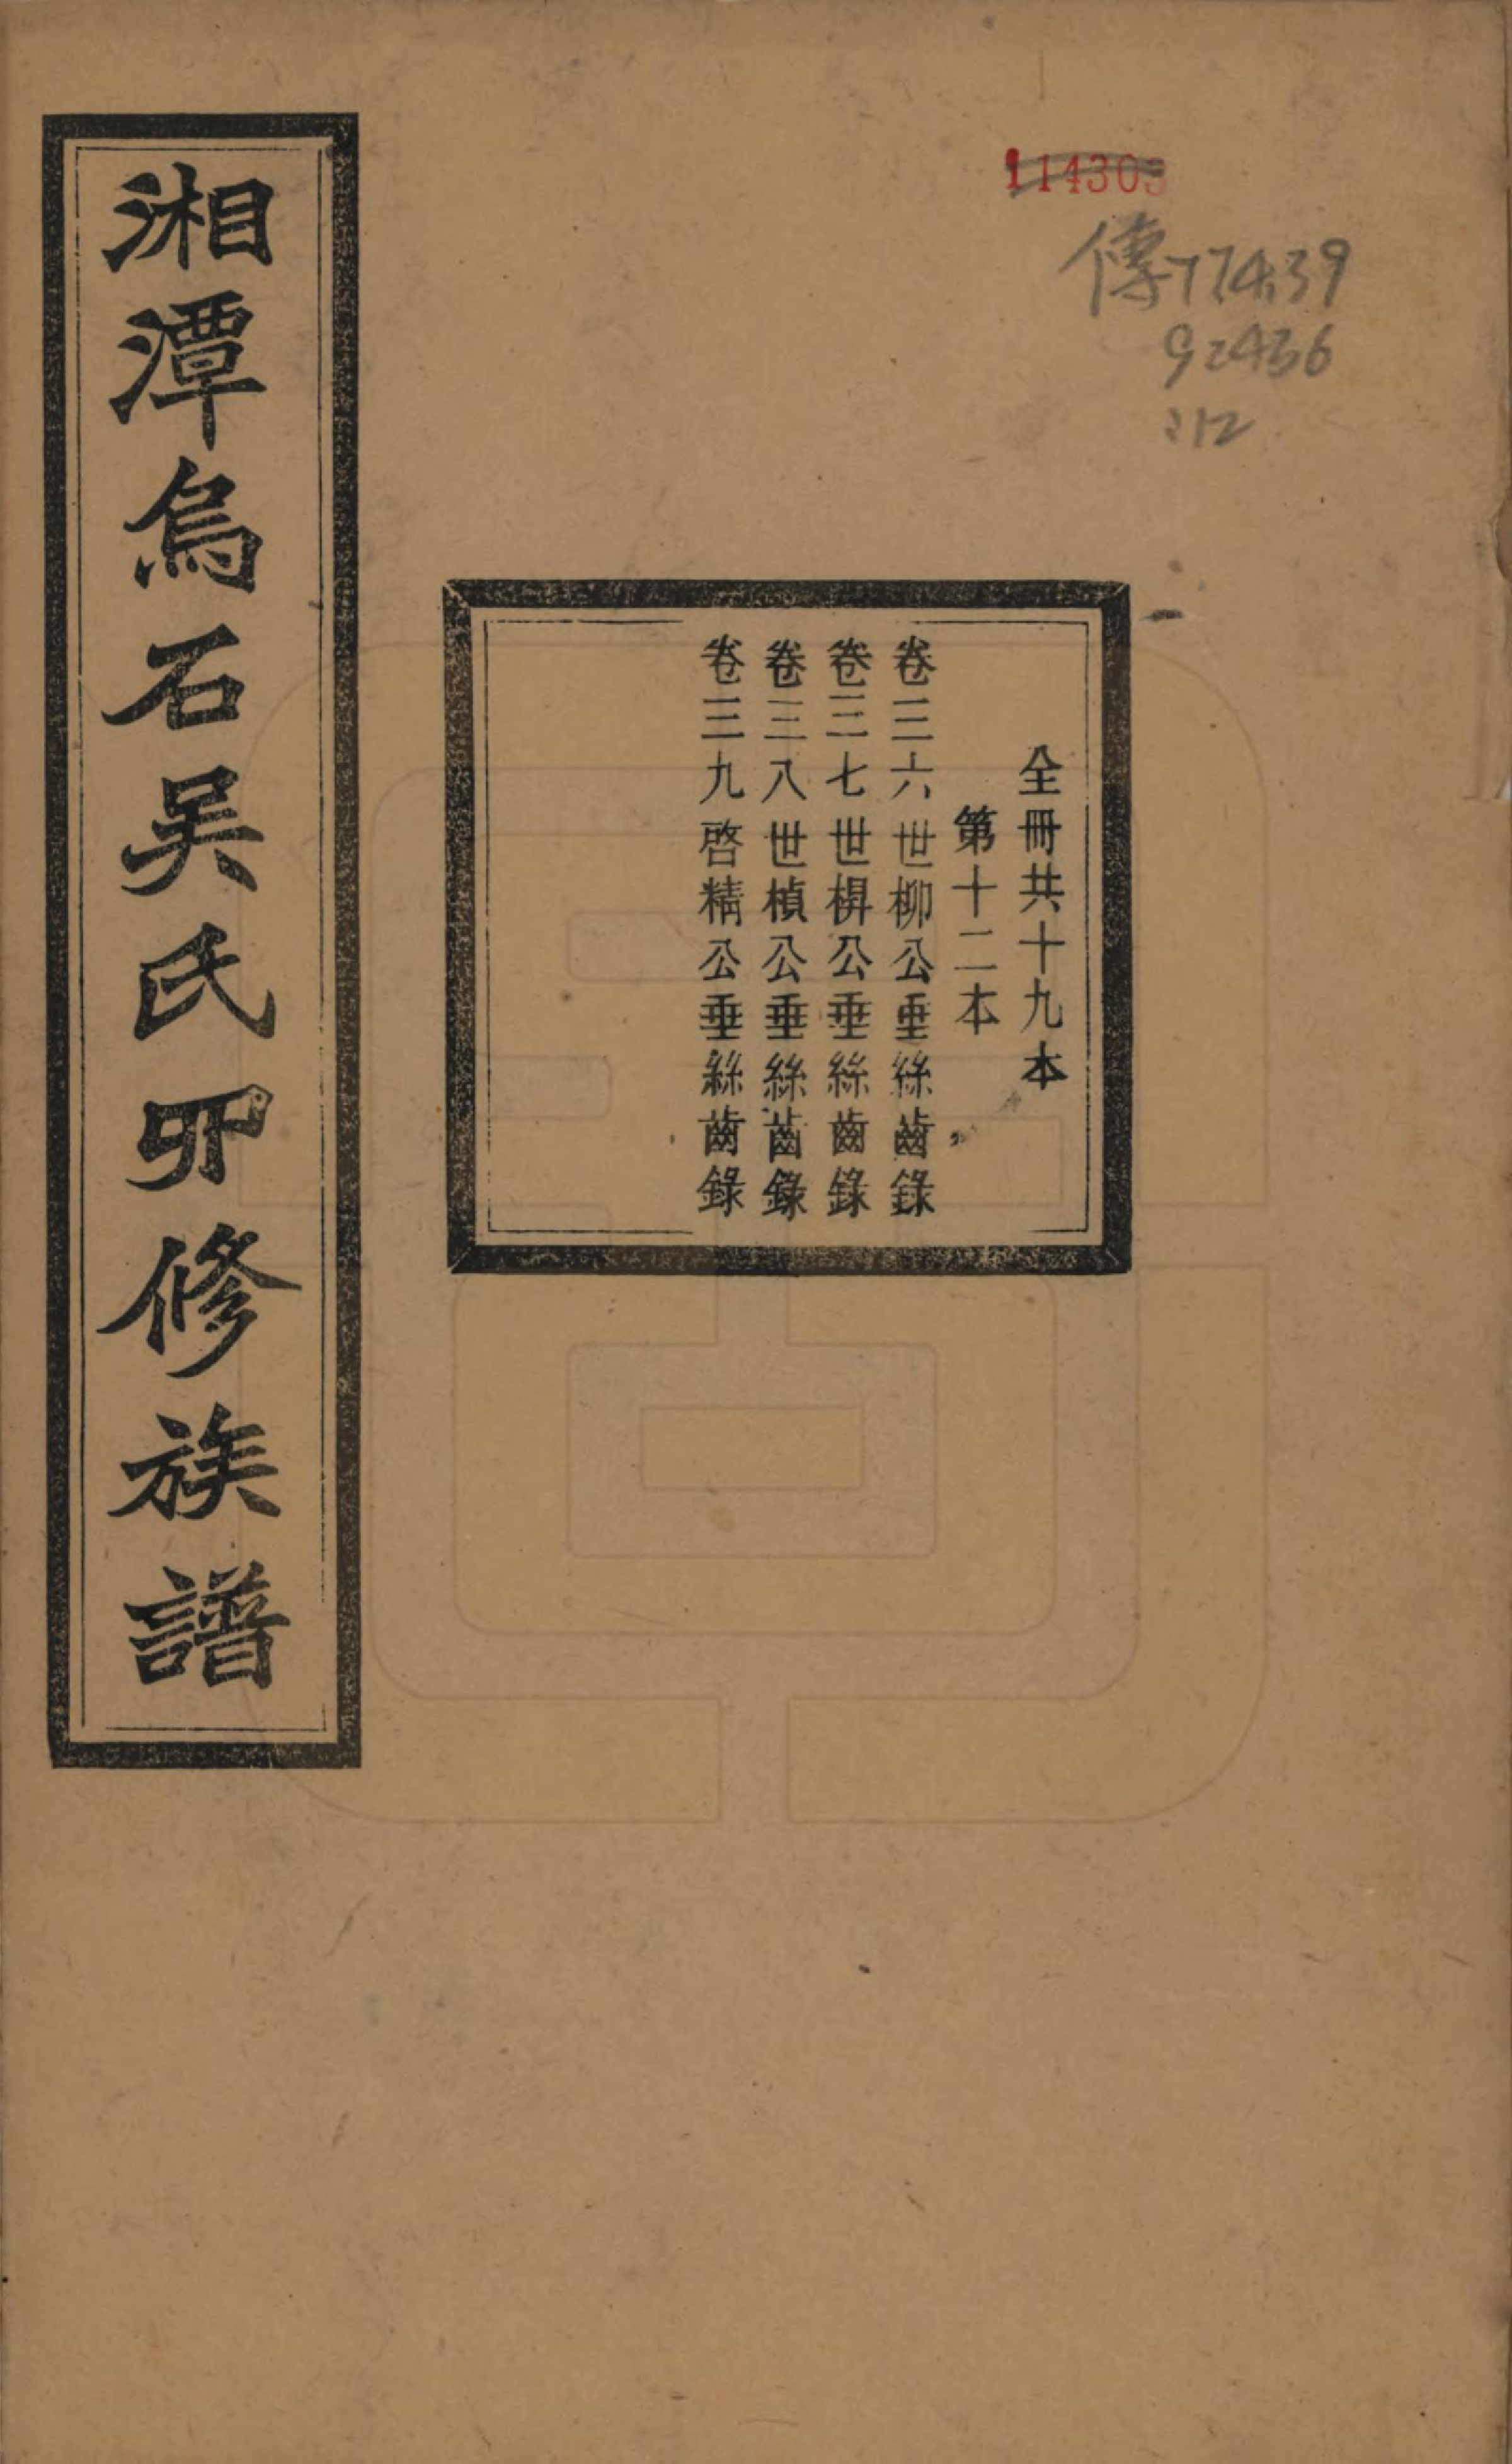 114303
傳774.39
92436
:12
全冊共十九本
第十二本
卷三六世柳公垂絲齒錄
卷三七世楫公垂絲齒錄
卷三八世楨公垂絲齒錄
卷三九啓精公垂絲齒錄
湘潭烏石吴氏四修族譜